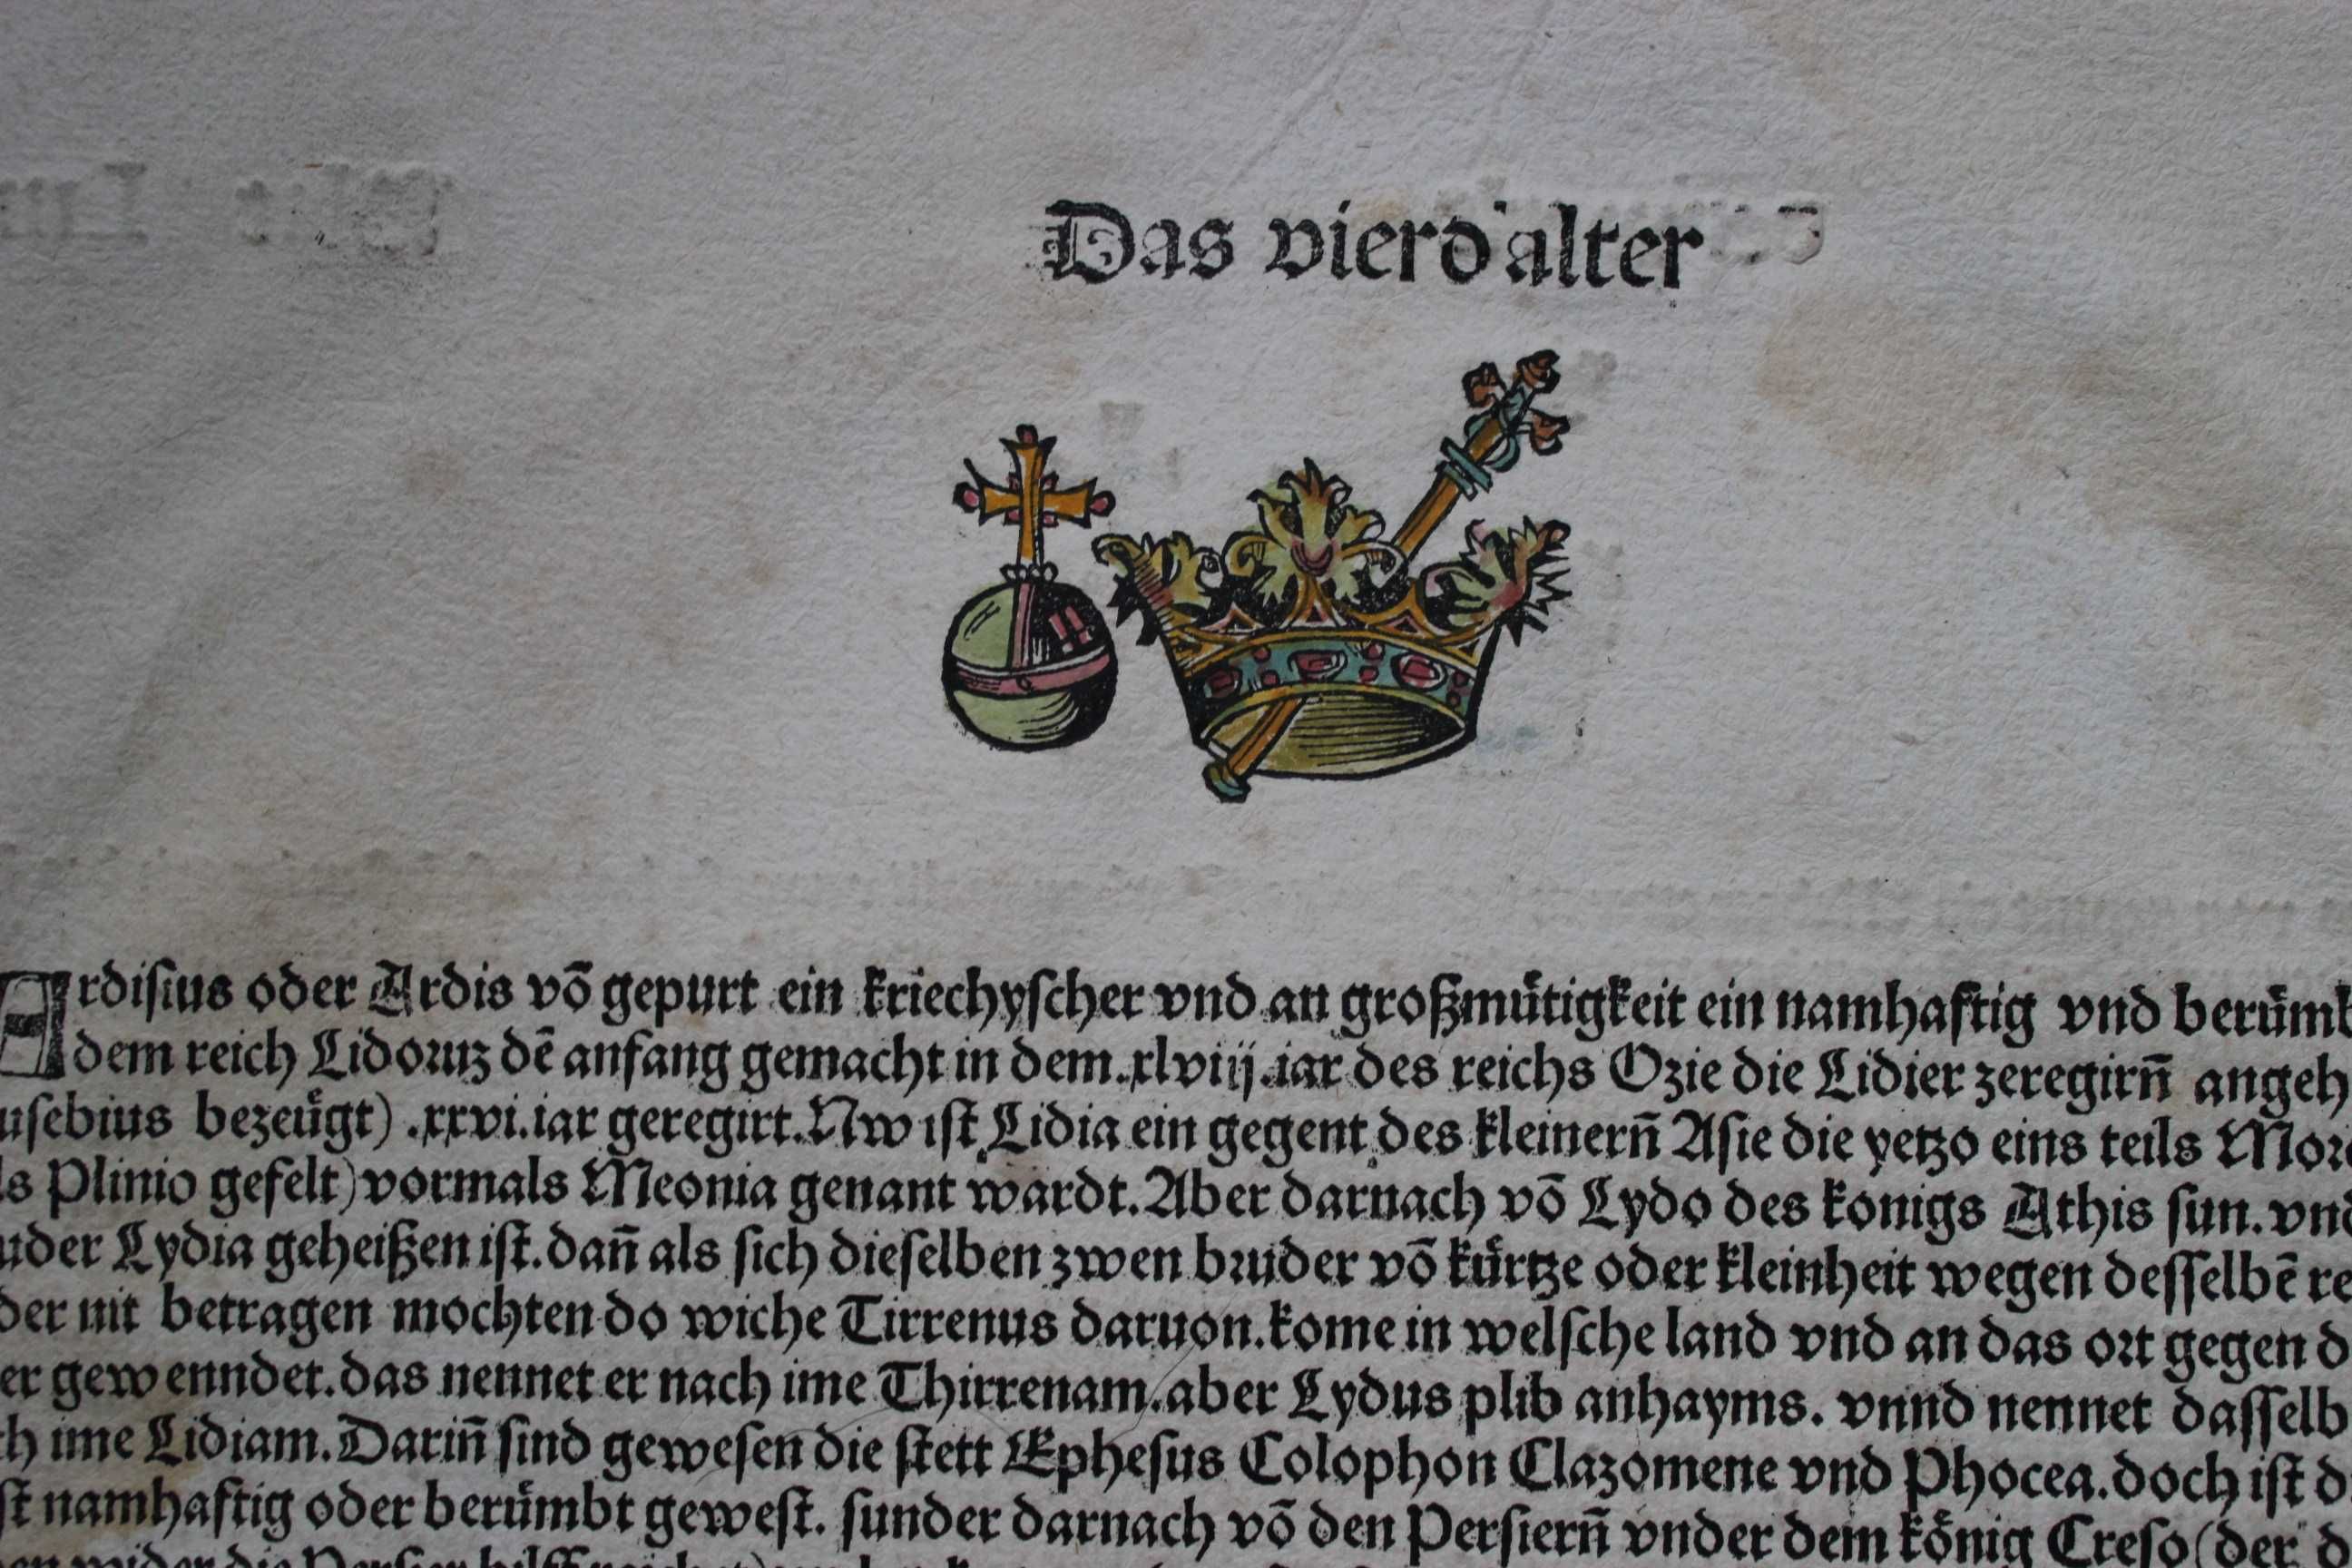 Das vierd alter
Ardisius oder Ardis võ gepurt ein kriechyscher vnd an großmütigkeit ein namhaftig vnd berümb
dem reich Lidoruꝫ dē anfang gemacht in dem .xlviij. iar des reichs Ozie die Lidier zeregirn̄ angeh
usebius bezeügt) .xxvi. iar geregirt. Nw ist Lidia ein gegent des kleinern̄ Asie die yetzo eins teils Mor
ls Plinio gefelt) vormals Meonia genant wardt. Aber darnach võ Lydo des konigs Athis sun. vnd
uder Lydia geheißen ist. dan̄ als sich dieselben zwen bruder võ kürtze oder kleinheit wegen desselbē re
der nit betragen mochten do wiche Tirrenus daruon. kome in welsche land vnd an das ort gegen d
er gewenndet. das nennet er nach ime Thirrenam. aber Lydus plib anhayms. vnnd nennet dasselb
ch ime Lidiam. Darin̄ sind gewesen die stett Ephesus Colophon Clazomene vnd Phocea. doch ist d
st namhaftig oder berümbt gewest. sunder darnach võ den Persiern̄ vnder dem könig Creso (der d